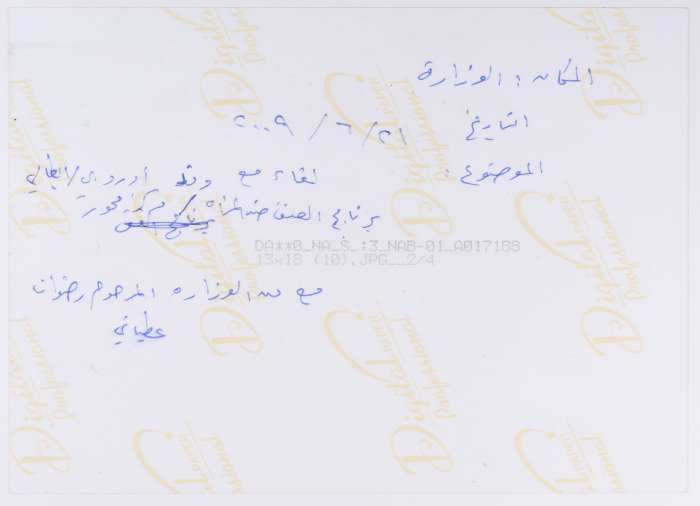 المكان : الوزارة
التاريخ ٢١ / ٦ / ٢٠٠٩
الموضوع : لقاء مع وفد أوروبي / إيطالي
برنامج العنف ضد المرأة / مركز محور
DA**0_NA_S_:3_NAB-01_A017188
13x18 (10).JPG__2/4
مع من الوزاره المرحوم رضوان
عطياني
Digital PAPER Professional